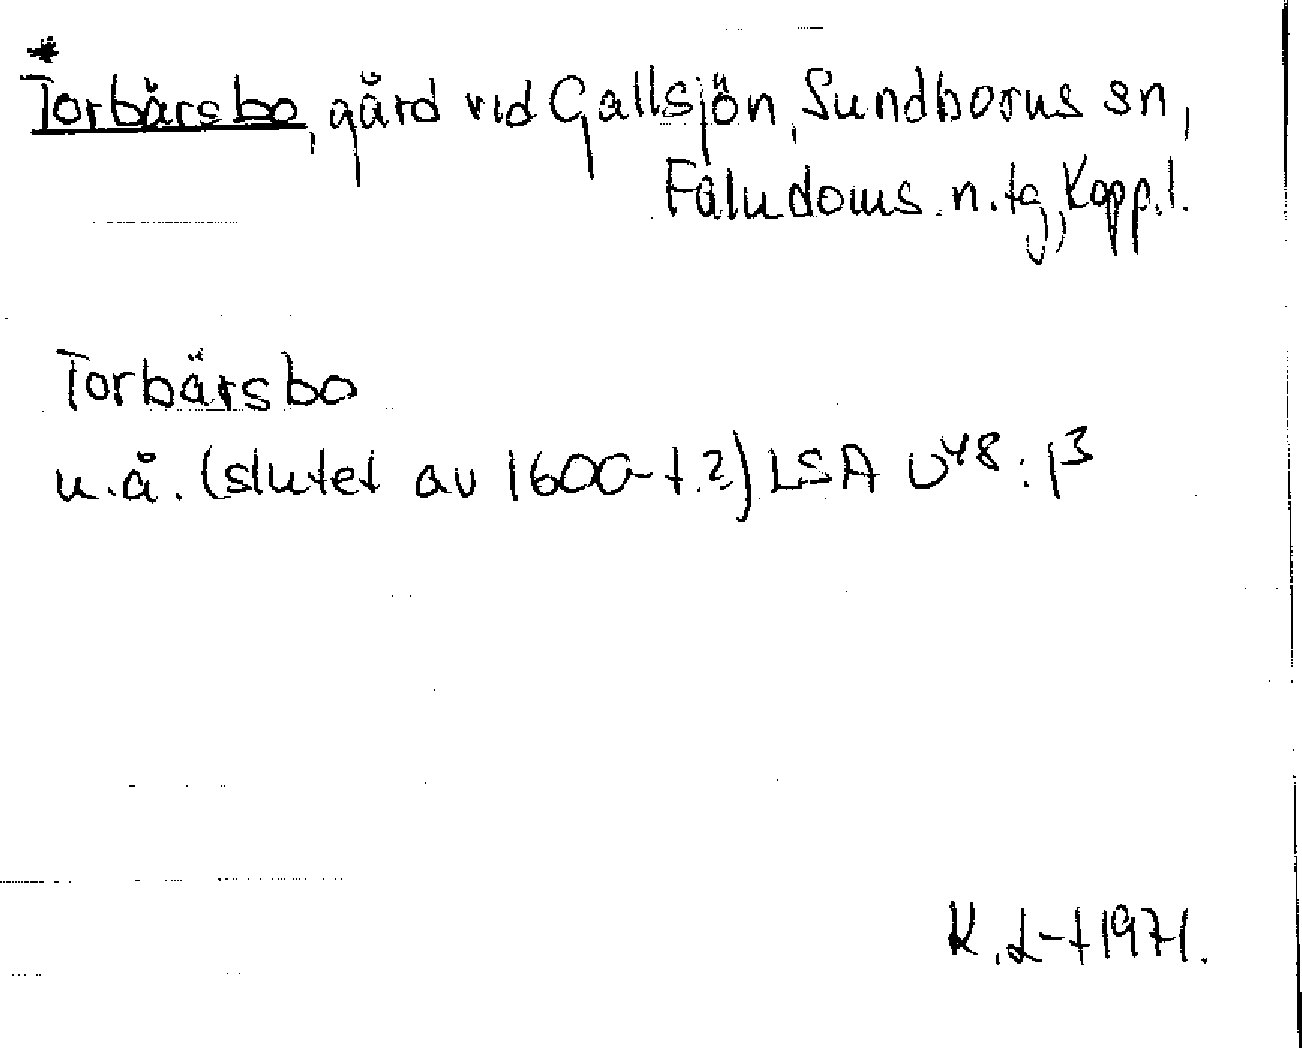 *
Torbärsbo, gård vid Gallsjön, Sundborns sn,
Faludoms n. tg, Kopp. l.
Torbärsbo
u.å. (slutet av 1600-t.?) LSA U48:1³
K. L-t 1971.